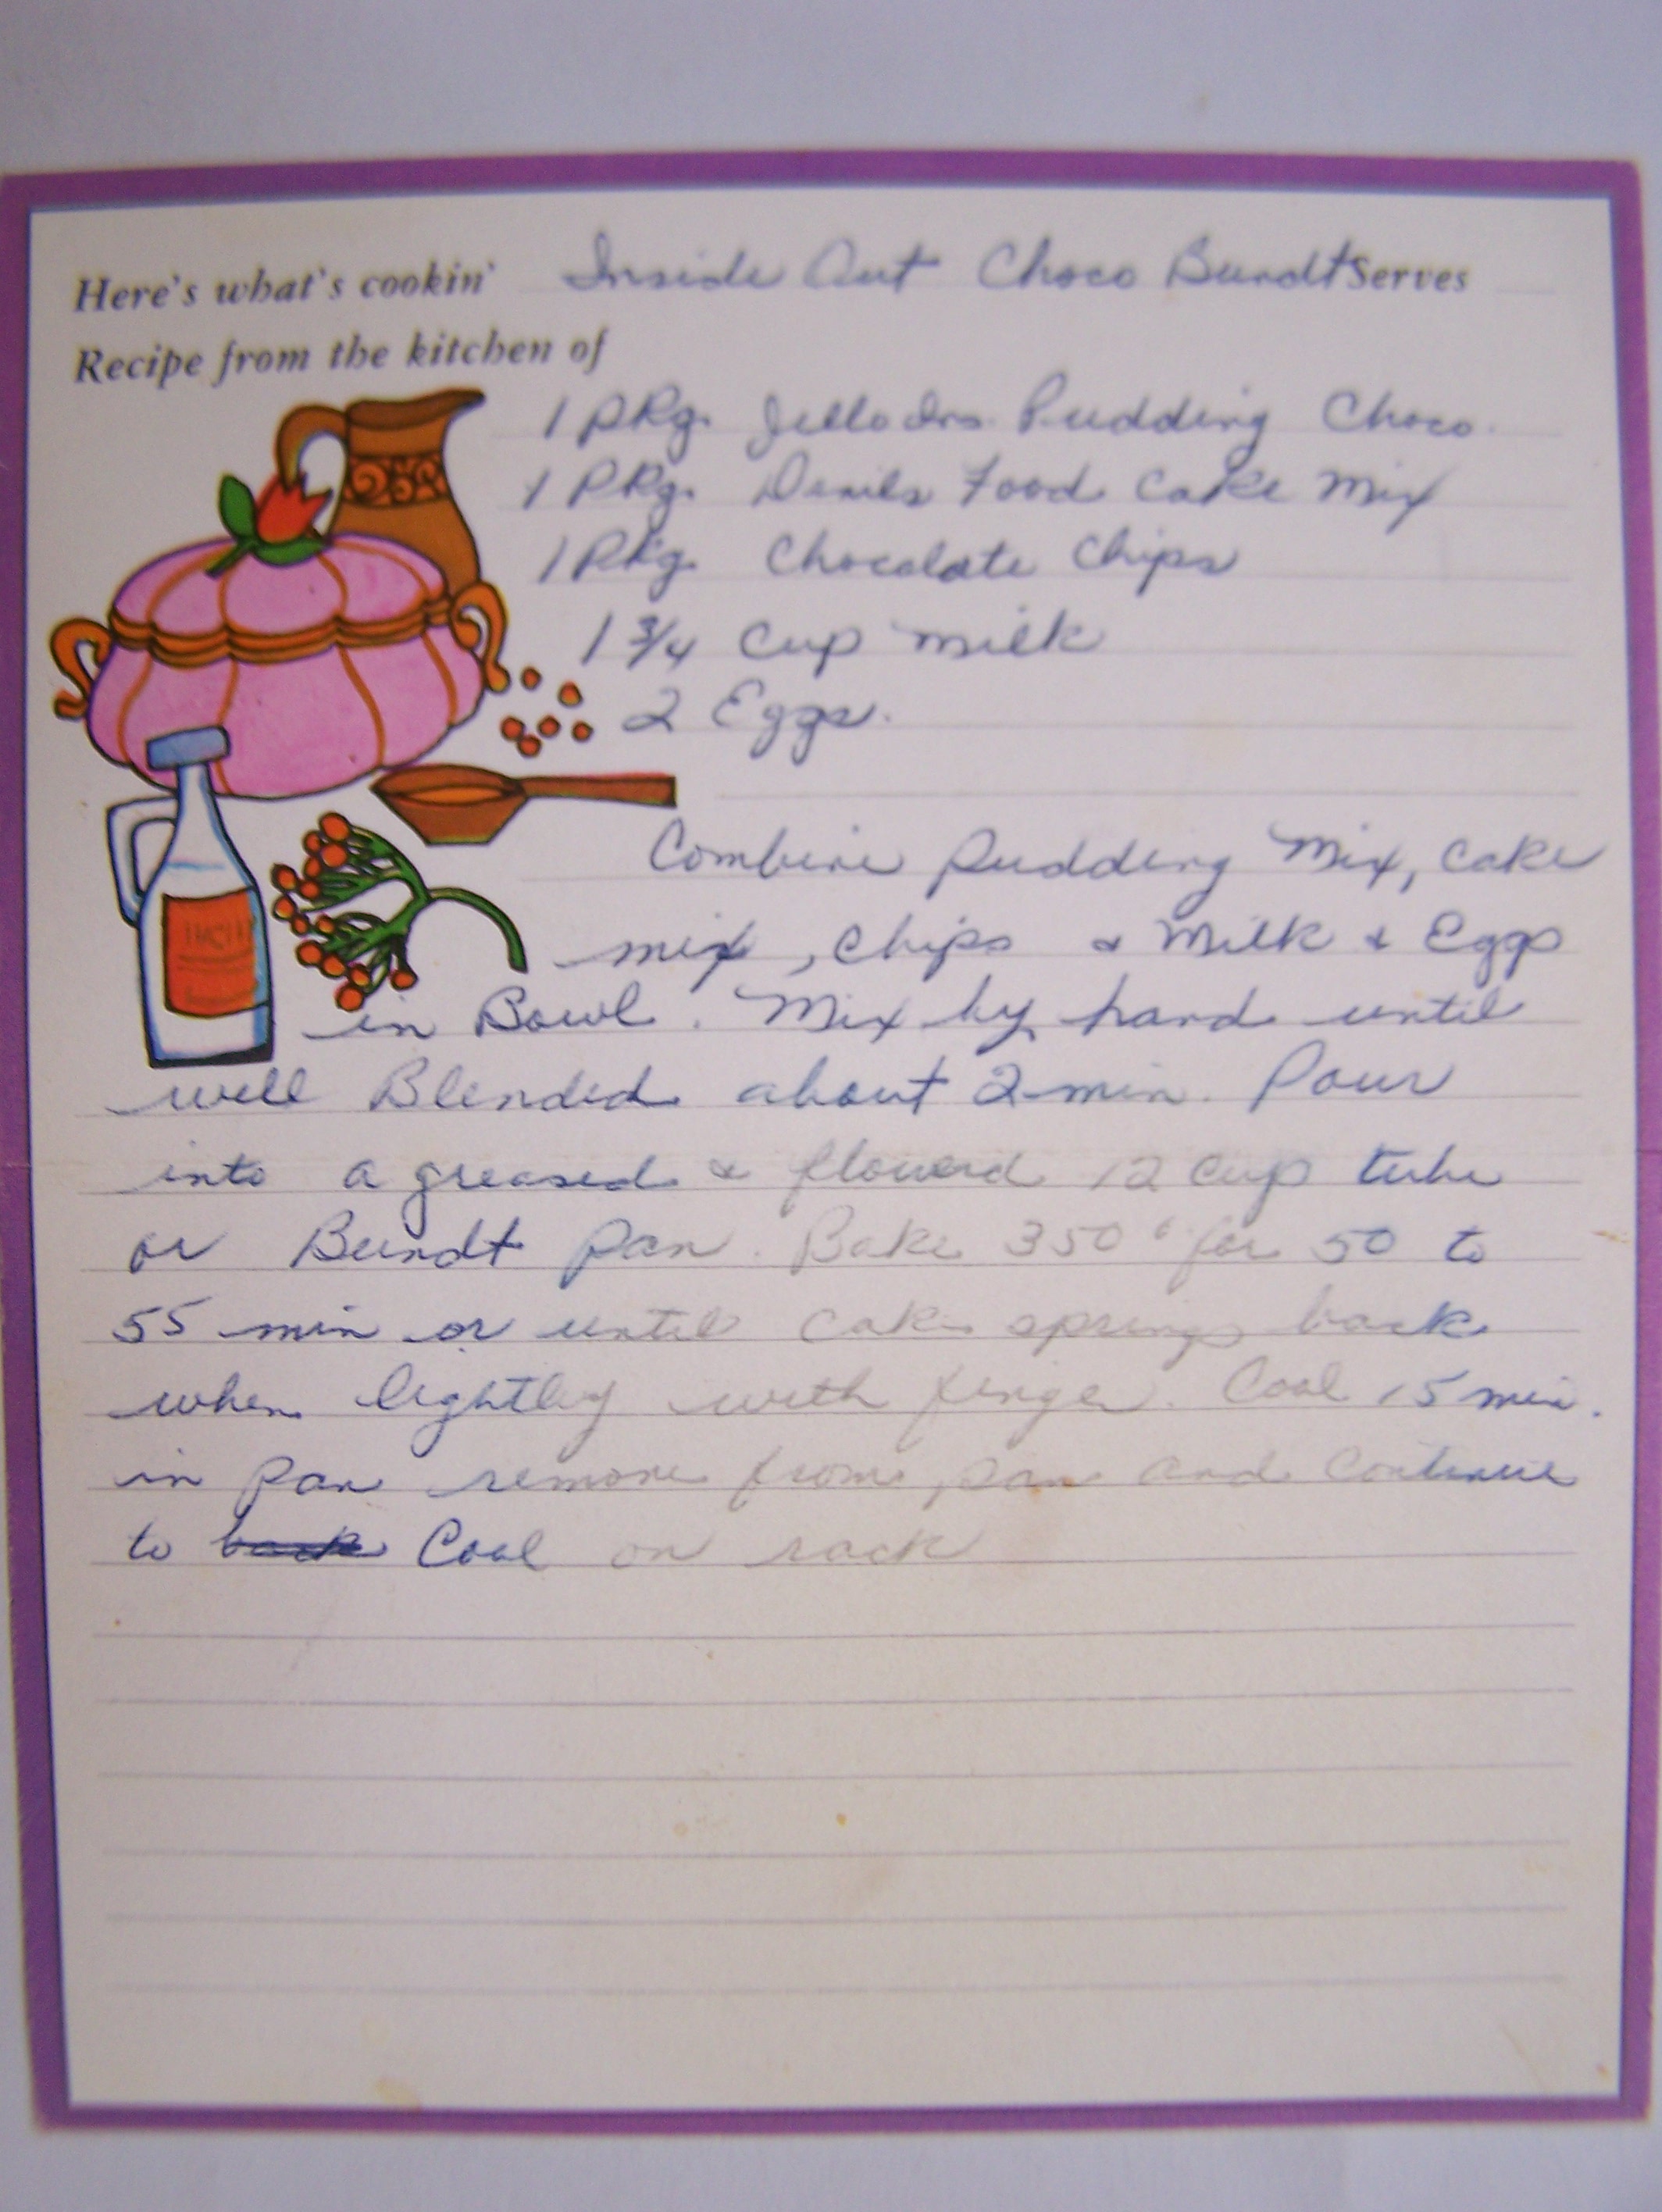 Here's what's cookin' Inside Out Choco Bundt Serves
Recipe from the kitchen of
1 PKg. Jello Ins. Pudding Choco.
1 PKg. Devils Food Cake Mix
1 PKg. Chocolate Chips
1 3/4 Cup Milk
2 Eggs.
Combine Pudding Mix, Cake
mix, Chips & Milk & Eggs
in Bowl. Mix by hand until
well Blended about 2 min. Pour
into a greased & flowerd 12 cup tube
or Bundt pan. Bake 350° for 50 to
55 min or until cake springs back
when lightly with finger. Cool 15 min.
in pan remove from pan and continue
to back Cool on rack